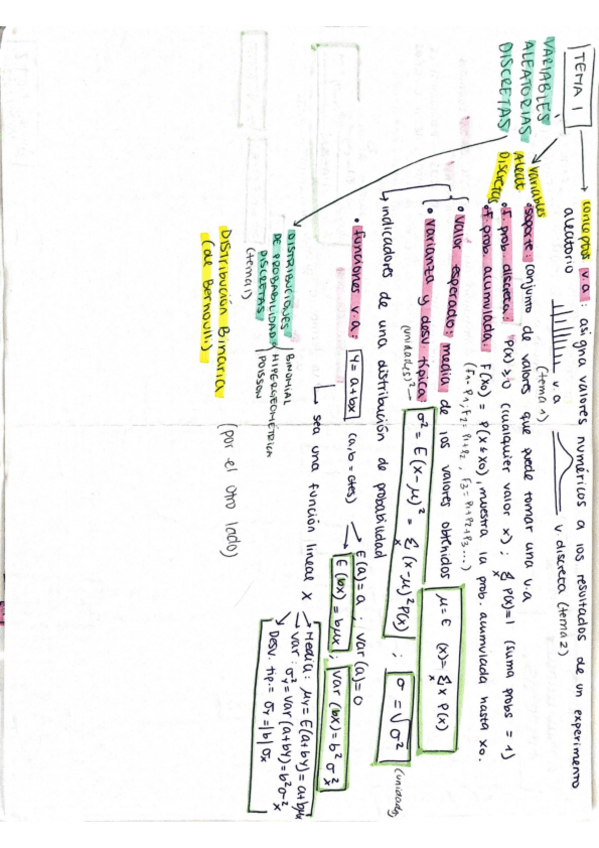 TEMA 1
VARIABLES
ALEATORIAS
DISCRETAS
conceptos v.a : asigna valores numéricos a los resultados de un experimento
aleatorio
v.a
(tema 1)
v. discreta (tema 2)
variables
Aleat
Discretas
• soporte: conjunto de valores que puede tomar una v.a
• f. prob. discreta: P(x) ≥ 0 (cualquier valor x) ; Σ P(x)=1 (suma probs = 1)
x
• f. prob. acumulada: F(x0) = P(x ≤ x0), muestra la prob. acumulada hasta x0.
(F1= P1 ; F2= P1+P2 , F3= P1+P2+P3...)
• valor esperado: media de los valores obtenidos μ = E (x)= Σ x P(x)
x
• varianza y desv típica: σ² = E(x-μ)² = Σ (x-μ)² P(x) ; σ = √σ²
x
(unidades)²
(unidades)
indicadores de una distribución de probabilidad
• funciones v.a: Y= a+bx (a,b = ctes) E(a)=a ; var(a)=0
E(bx) = bμx ; var(bx)= b²σ²x
sea una función lineal x
Media: μy = E(a+by) = a+bμx
var : σ²y = var(a+by)=b²σ²x
Desv. tip.= σy = |b|σx
DISTRIBUCIONES
DE PROBABILIDAD
DISCRETAS
(tema 1)
BINOMIAL
HIPERGEOMÉTRICA
POISSON
Distribución Binaria
(de Bernoulli)
(por el otro lado)